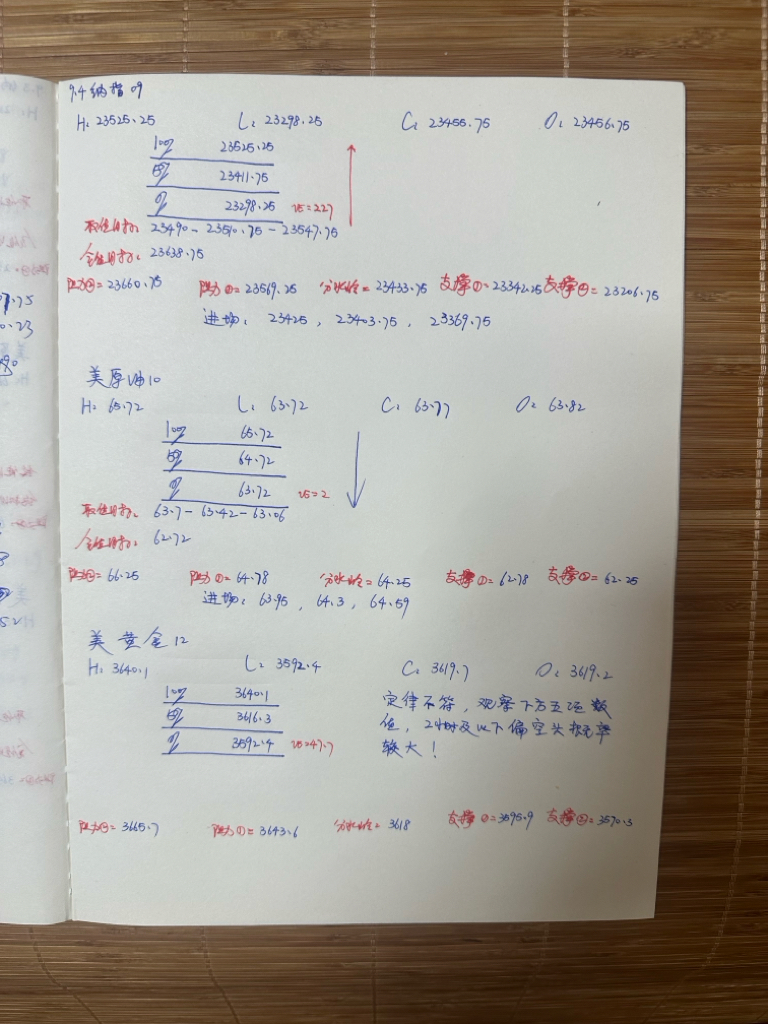 9.4 纳指 09
H: 23525.25 L: 23298.25 C: 23455.75 O: 23456.75
100% 23525.25
50% 23411.75
0% 23298.25 VS=227
23490 - 23510.75 - 23547.75
23638.75
阻力②= 23660.75 阻力①= 23569.25 分水岭= 23433.75 支撑①= 23342.25 支撑②= 23206.75
进场: 23425, 23403.75, 23369.75
美原油10
H: 65.72 L: 63.72 C: 63.77 O: 63.82
100% 65.72
50% 64.72
0% 63.72 VS=2
63.7 - 63.42 - 63.06
62.72
阻力②= 66.25 阻力①= 64.78 分水岭= 64.25 支撑①= 62.78 支撑②= 62.25
进场: 63.95, 64.3, 64.59
美黄金12
H: 3640.1 L: 3592.4 C: 3619.7 O: 3619.2
100% 3640.1
50% 3616.3
0% 3592.4 VS=47.7
定律不符，观察下方五组数
值，2小时及以下偏空头概率
较大！
阻力②= 3665.7 阻力①= 3643.6 分水岭= 3618 支撑①= 3595.9 支撑②= 3570.3